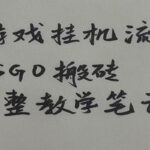 游戏挂机流
SGO搬砖
整教学笔记